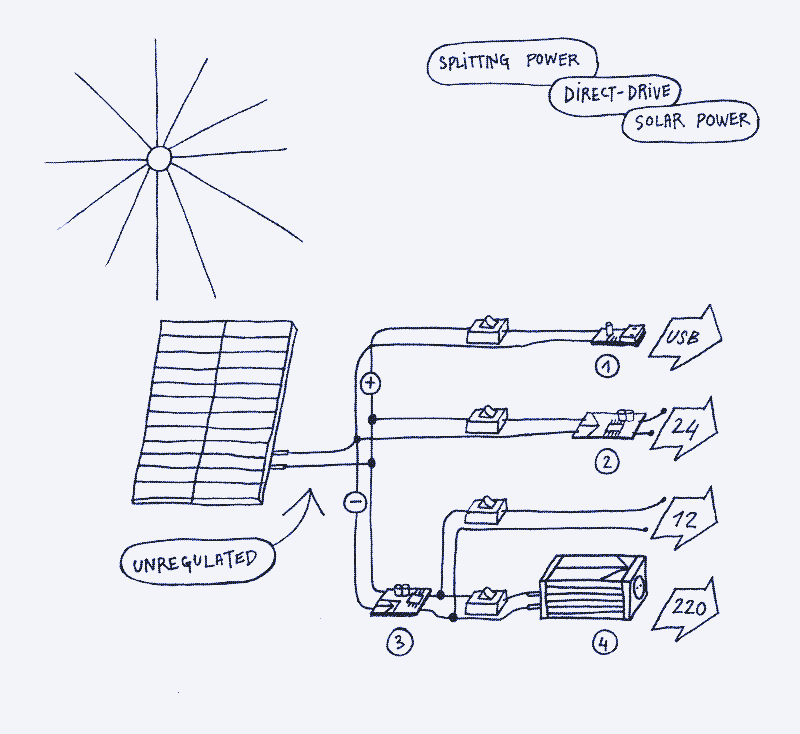 SPLITTING POWER
DIRECT-DRIVE
SOLAR POWER
USB
1
+
24
2
−
12
UNREGULATED
220
3
4